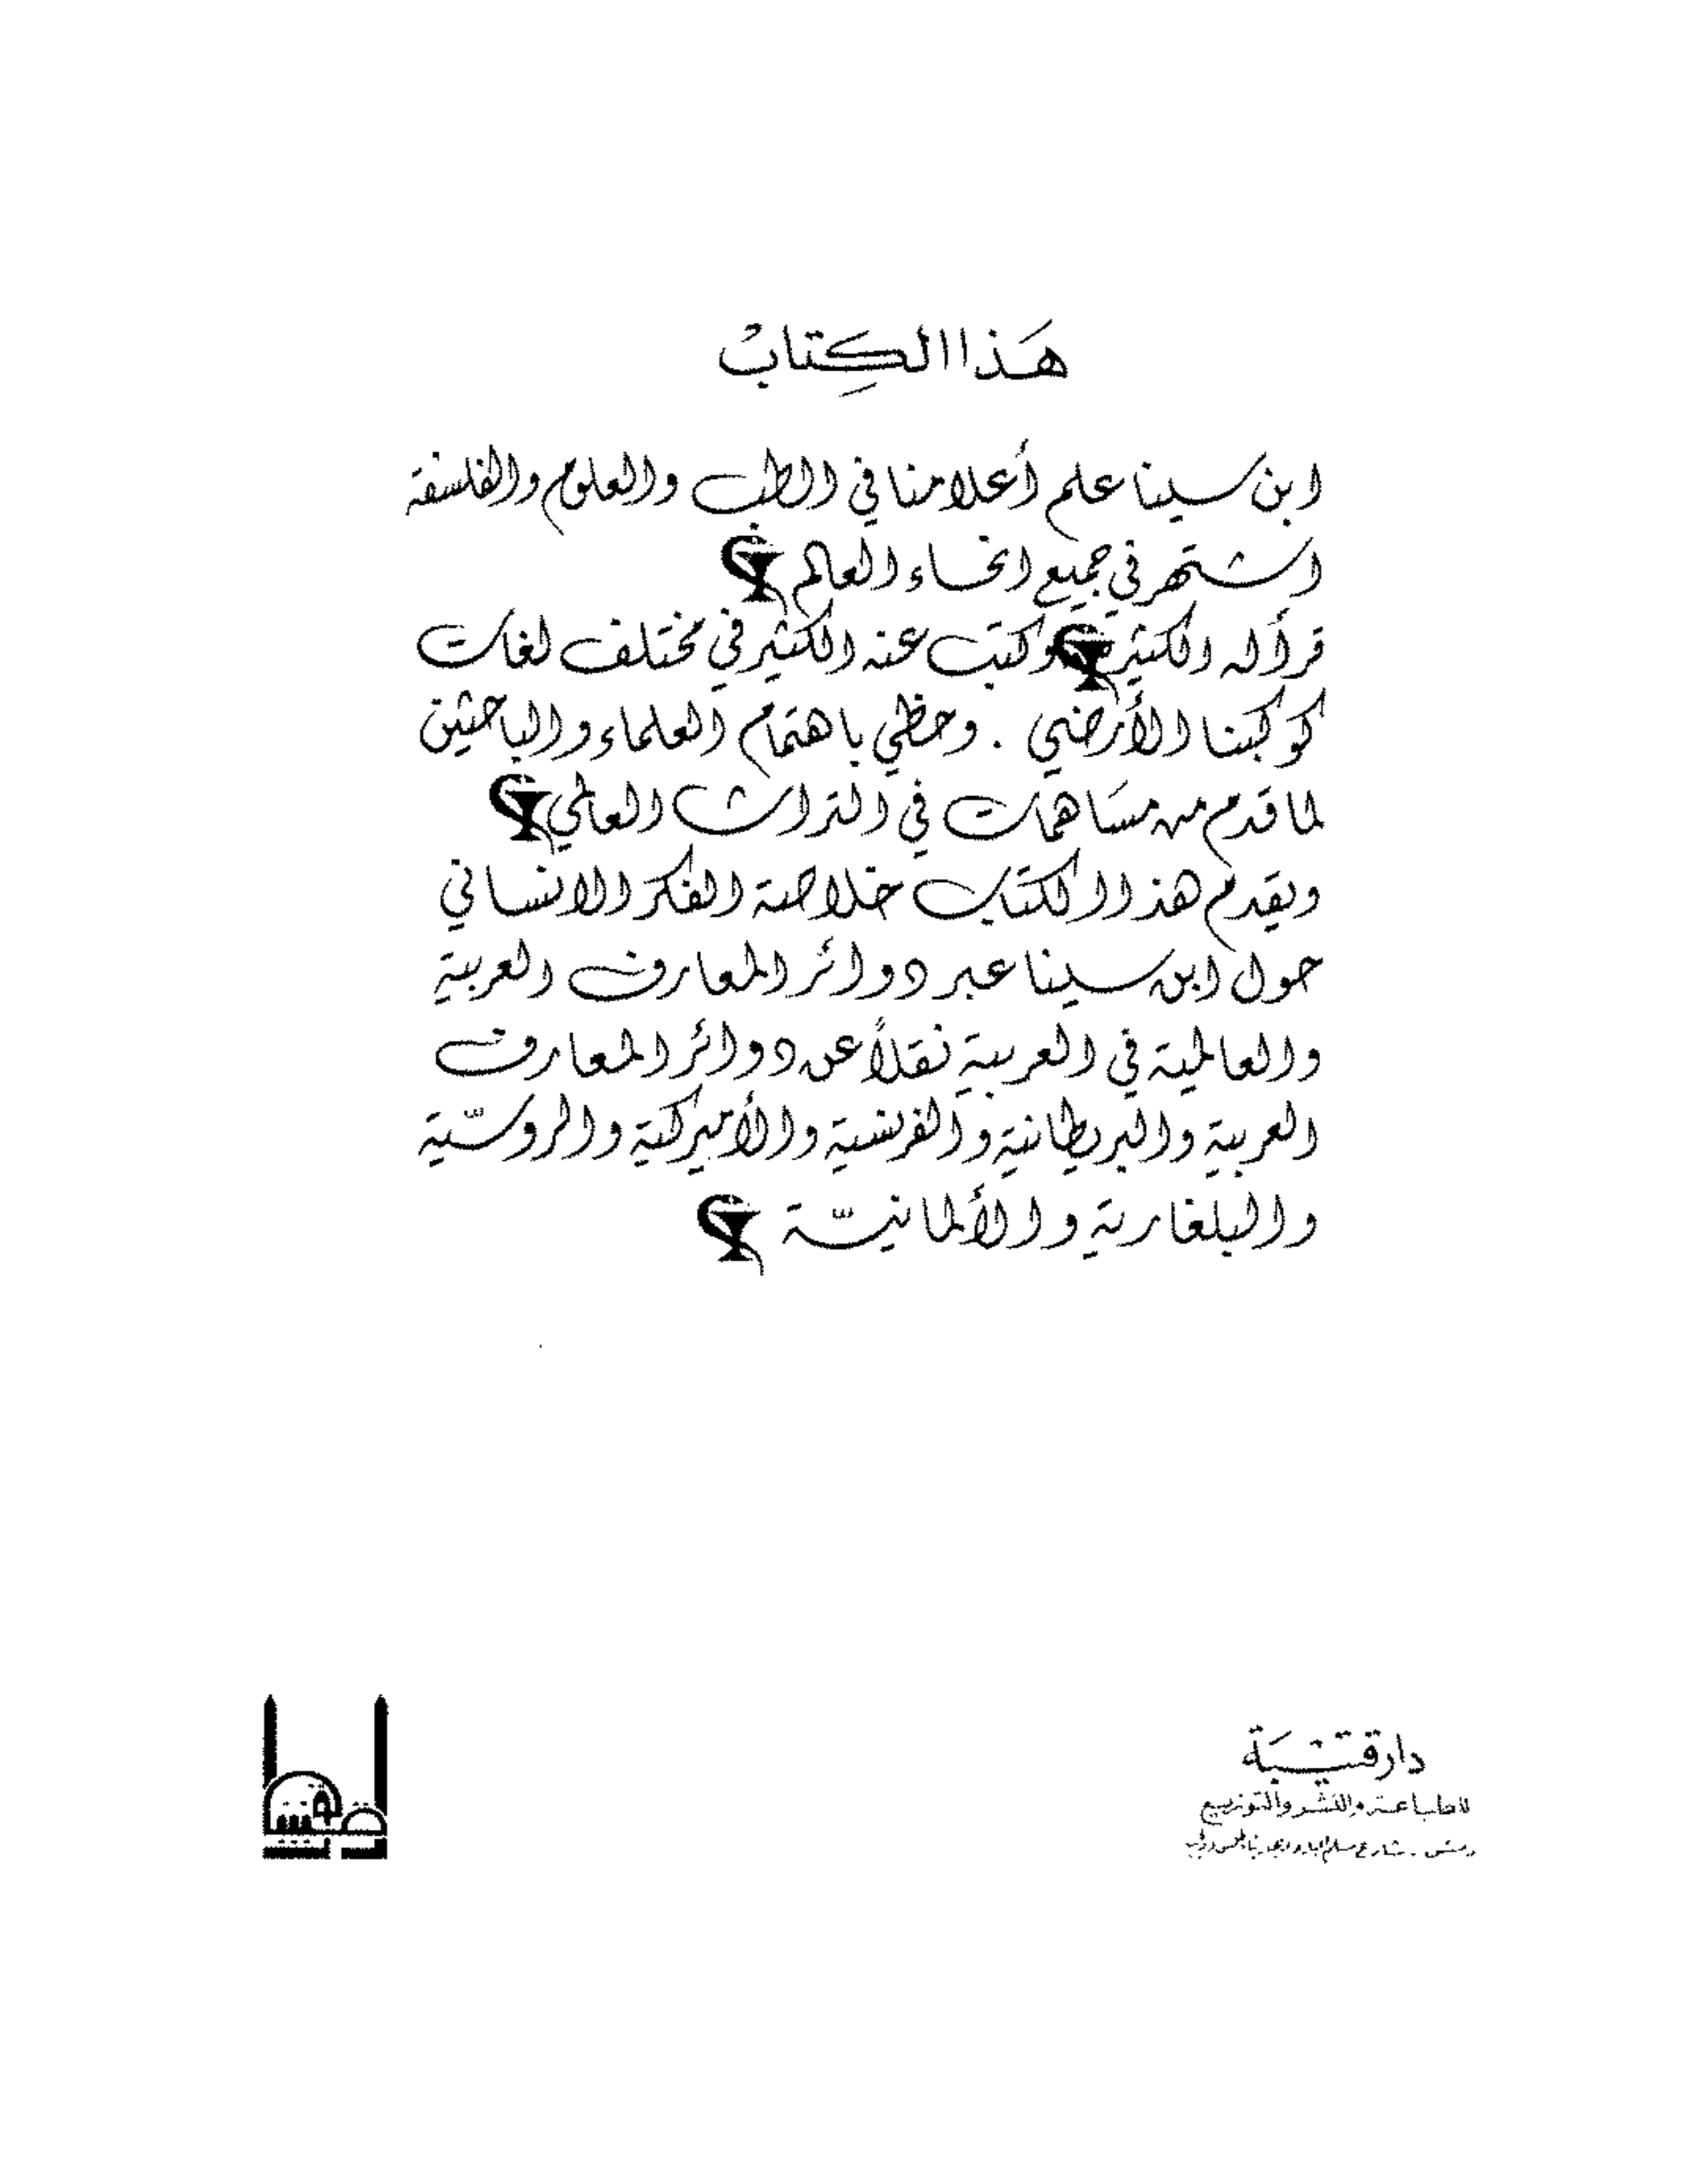 هَذا الكِتابْ
ابن سينا علم أعلامنا في الطب والعلوم والفلسفة
اشتهر في جميع انحاء العالم
قرأ له الكثير وكتب عنه الكثير في مختلف لغات
كوكبنا الأرضي . وحظي باهتمام العلماء والباحثين
لما قدم من مسَاهمات في التراث العالمي
ويقدم هذا الكتاب خلاصة الفكر الانساني
حول ابن سينا عبر دوائر المعارف العربية
والعالمية في العربية نقلاً عن دوائر المعارف
العربية والبريطانية والفرنسية والأميركية والروسيّة
والبلغارية والألمانيّة
دار قتيبَة
للطباعة والنشر والتوزيع
دمشق . شارع مسلم البارودي